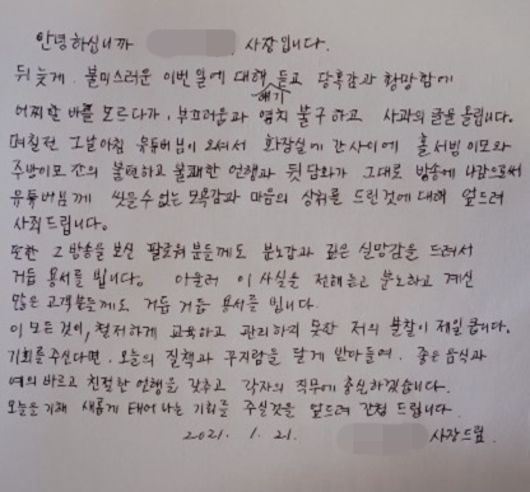 안녕하십니까 사장입니다.
뒤늦게. 불미스러운 이번 일에 대해 얘기 듣고 당혹감과 황망함에
어찌할 바를 모르다가, 부끄러움과 염치 불구하고 사과의 글을 올립니다.
며칠전 그날아침 유튜버님이 오셔서 화장실에 간사이에 홀서빙 이모와
주방이모 간의 불편하고 불쾌한 언행과 뒷담화가 그대로 방송에 나감으로써
유튜버님께 씻을수 없는 모욕감과 마음의 상처를 드린것에 대해 엎드려
사죄드립니다.
또한 그 방송을 보신 팔로워분들께도 분노감과 깊은 실망감을 드려서
거듭 용서를 빕니다. 아울러 이 사실을 전해듣고 분노하고 계신
많은 고객분들께도 거듭 거듭 용서를 빕니다.
이 모든것이, 철저하게 교육하고 관리하지 못한 저의 불찰이 제일 큽니다.
기회를 주신다면. 오늘의 질책과 꾸지람을 달게 받아들여. 좋은 음식과
예의 바르고 친절한 언행을 갖추고 각자의 직무에 충실하겠습니다.
오늘을 기해 새롭게 태어나는 기회를 주실것을 엎드려 간청 드립니다.
2021. 1. 21. 사장드림